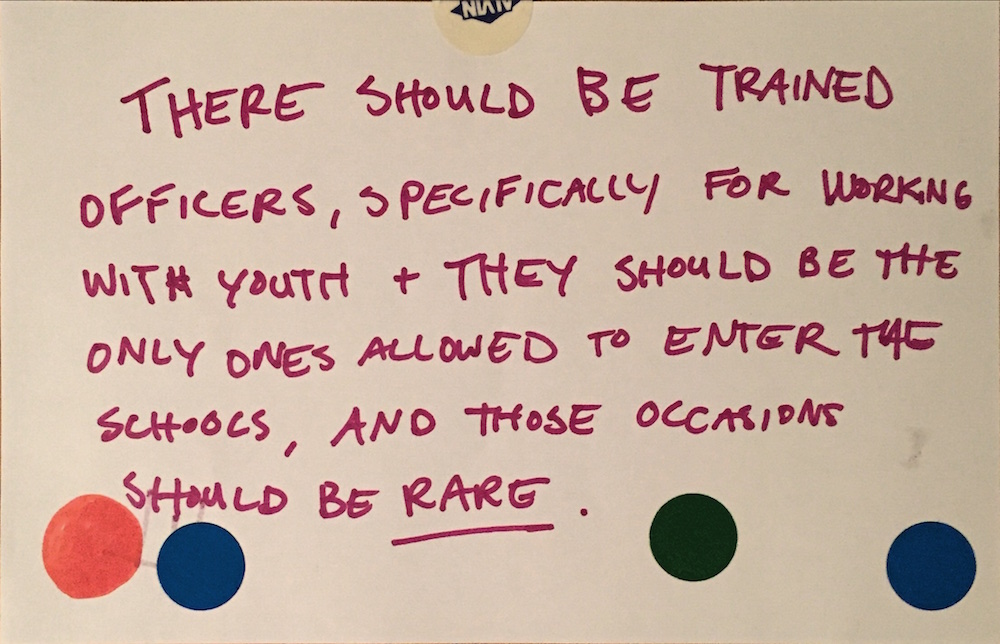 ALVIN
THERE SHOULD BE TRAINED
OFFICERS, SPECIFICALLY FOR WORKING
WITH YOUTH + THEY SHOULD BE THE
ONLY ONES ALLOWED TO ENTER THE
SCHOOLS, AND THOSE OCCASIONS
SHOULD BE RARE.